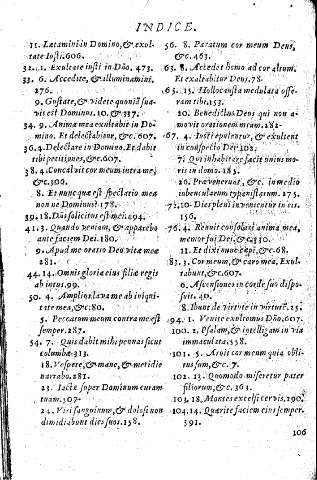 INDICE.
11. Lætamini in Domino, & exul-
tate Iusti. 606.
32. 1. Exultate iusti in Dño, 473.
33. 6. Accedite, & illuminamini.
276.
9. Gustate, & videte quoniã sua-
vis est Dominus. 10. & 337.
34. 9. Anima mea exultabit in Do-
mino. Et delectabitur, & c. 607.
36. 4. Delectare in Domino. Et dabit
tibi petitiones, & c. 606.
38. 4. Concalvit cor meum intra me,
& c. 306.
8. Et nunc quæ est spectatio mea
non ne Dominus? 178.
39. 18. Dñs solicitus est mei. 494.
41. 3. Quando veniam, & apparebo
ante faciem Dei. 180.
9. Apud me oratio Deo vitæ meæ
281.
44. 14. Omnis gloria eius filiæ regis
ab intus. 99.
50. 4. Amplius lava me ab iniqui-
tate mea, & c. 80.
5. Peccatum meum contra me est
semper. 287.
54. 7. Quis dabit mihi pennas sicut
columbæ. 313.
18. Vespere, & mane, & meridie
narrabo. 281.
23. Iacta super Dominum curam
tuam. 507.
24. Viri sanguinum, & dolosi non
dimidiabunt dies suos. 158.
56. 8. Paratum cor meum Deus,
& c. 463.
63. 8. Accedet homo ad cor altum.
Et exaltabitur Deus. 78.
65. 15. Holocausta medulata offe-
ram tibi. 153.
20. Benedictus Deus qui non a-
movit orationem meam. 282.
67. 4. Iusti epulentur, & exultent
in conspectu Dei. 102.
7. Qui inhabitare facit unius mo-
ris in domo. 185.
26. Prævenerunt, & c. in medio
iubencularum tympanistrarum. 275.
72. 10. Dies pleni invenientur in eis.
156.
76. 4. Renuit consolari anima mea,
memor fui Dei, & c. 330.
11. Et dixi nunc cæpi, & c. 68.
83. 3. Cor meum, & caro mea. Exul-
tabunt, & c. 607.
6. Ascensiones in corde suo dispo-
suit. 40.
8. Ibunt de virtute in virtutẽ. 25.
94. 1. Venite exultemus Dño. 607.
100. 2. Psalam, & intelligam in via
immaculata. 558.
101. 5. Aruit cor meum quia obli-
tus sum, & c. 7.
102. 13. Quomodo miseretur pater
filiorum, & c. 363.
103. 18. Montes excelsi cervis. 290.
104. 14. Quærite faciem eius semper.
391.
106